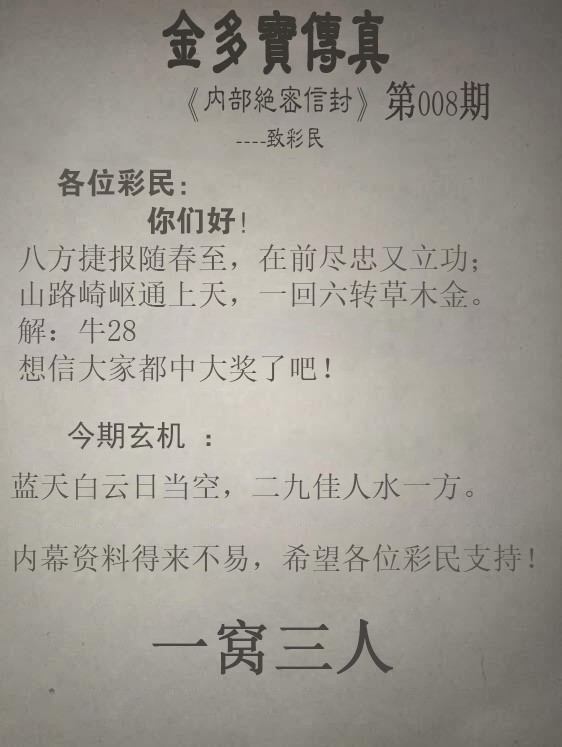 金多寶傳真
《内部絕密信封》第008期
----致彩民
各位彩民:
你们好!
八方捷报随春至，在前尽忠又立功;
山路崎岖通上天，一回六转草木金。
解：牛28
想信大家都中大奖了吧!
今期玄机 :
蓝天白云日当空，二九佳人水一方。
内幕资料得来不易，希望各位彩民支持!
一窝三人